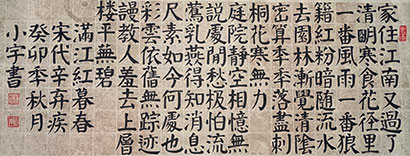 家住江南又過了
清明寒食花徑里
一番風雨一番狼
籍紅粉暗隨流水
去園林漸覺清陰
密算季季落盡刺
桐花寒無力
庭院静空相憶無
說處閒愁極怕流
鶯乳燕得知消息
尺素如今何處也
彩雲依舊無踪迹
謾教人羞去上層
樓平蕪碧
滿江紅暮春
宋代辛弃疾
癸卯季秋月
小宇書